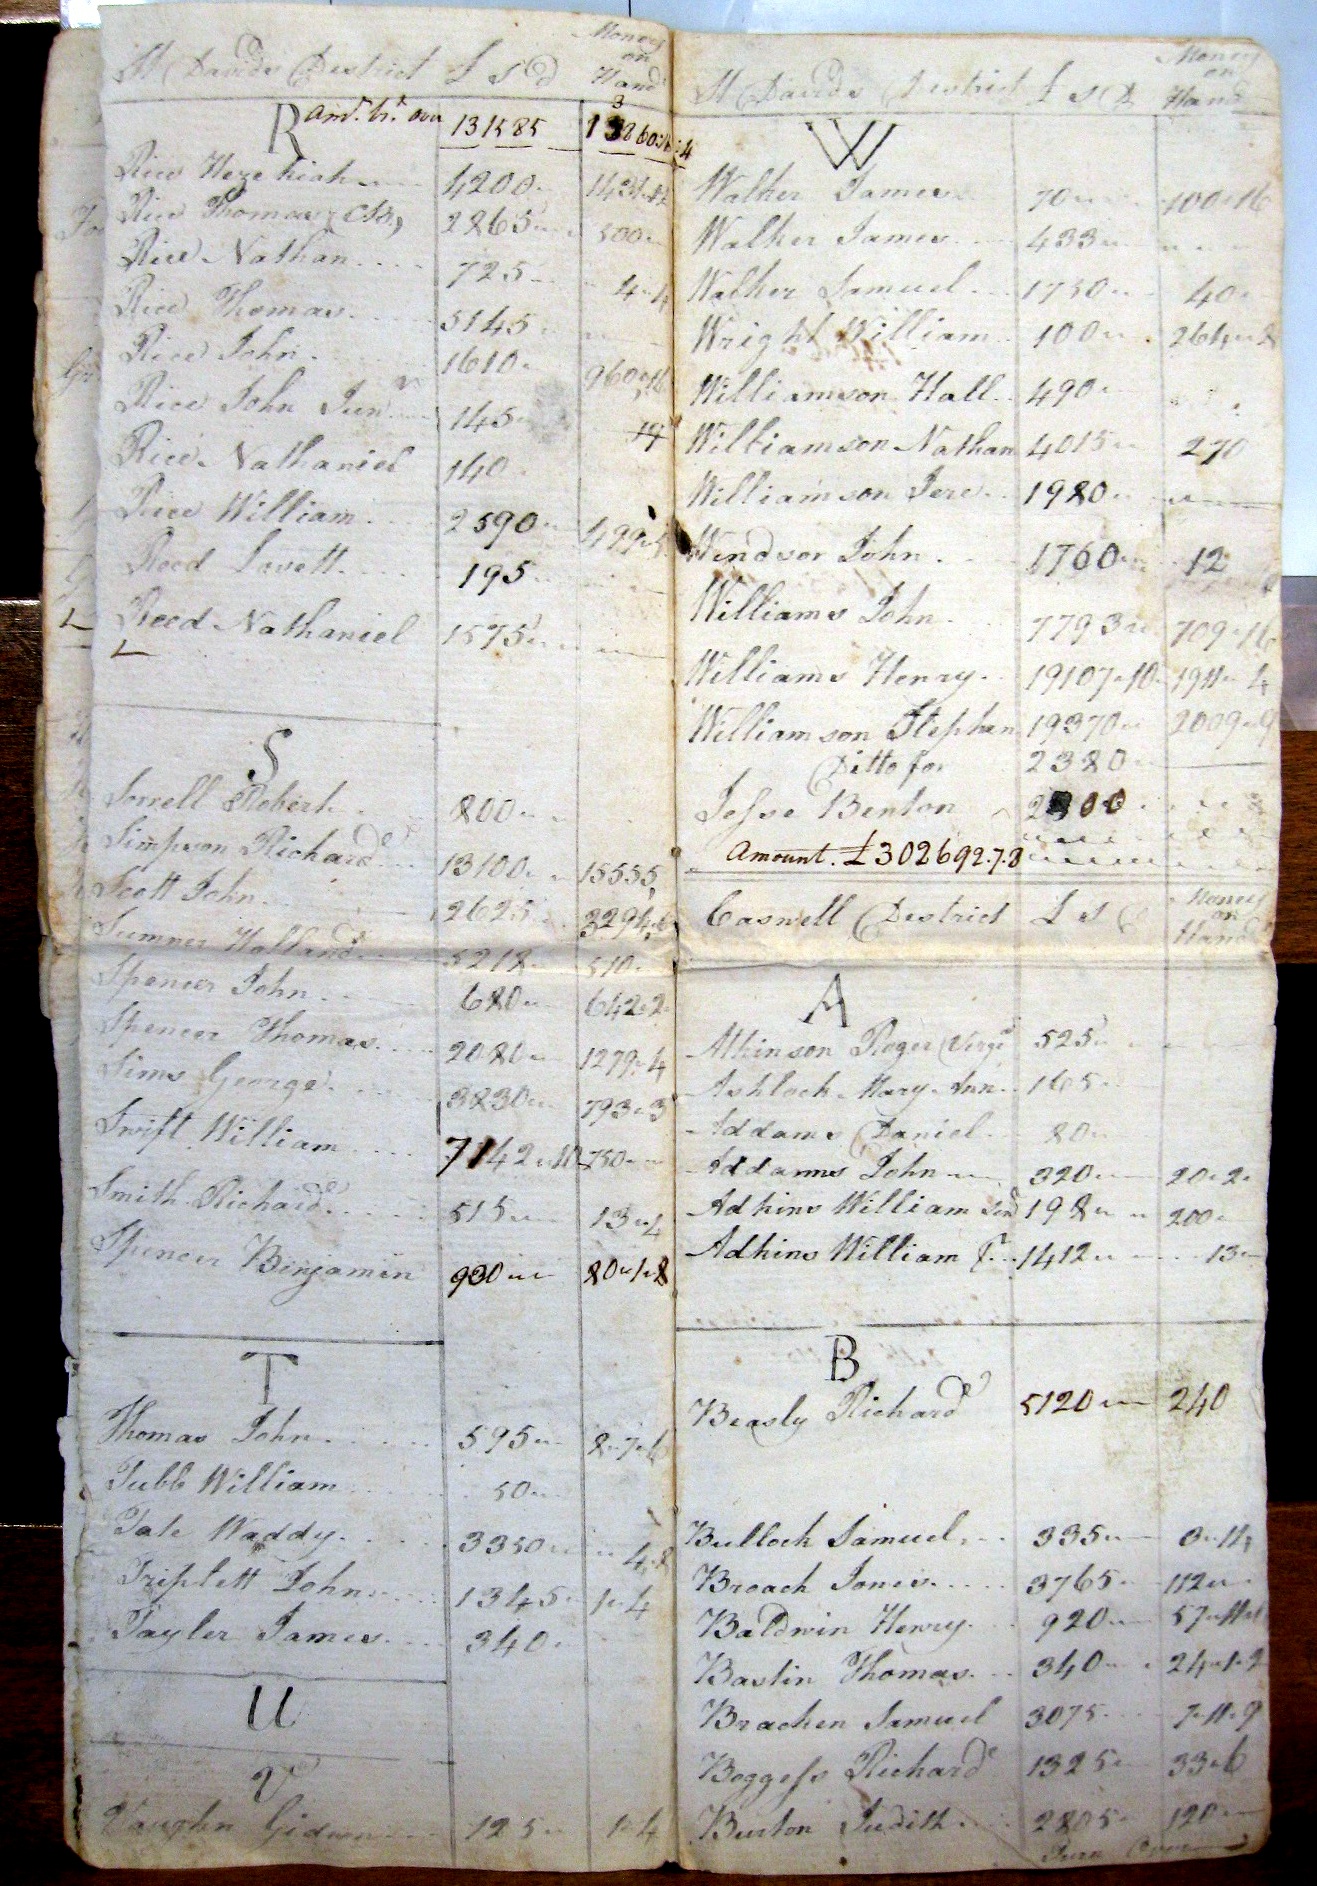 St Davids District £ S D Money on Hand
R Amt. Bt. over 131585 13860
Rice Hezekiah 4200 1431
Rice Thomas 2865 500
Rice Nathan 725 4..4
Rice Thomas 5145
Rice John 1610 960..16
Rice John Junr 145 14
Rice Nathaniel 140
Rice William 2590 499
Reed Lovett 195
Reed Nathaniel 1575
S
Sorrell Robert 800
Simpson Richard 13100 15555
Scott John 2625 3294
Sumner Holland 5218 510
Spencer John 680 642..2
Spencer Thomas 2080 1279..4
Sims George 3830 793..3
Swift William 7142..10 750
Smith Richard 515 13..4
Spencer Binjamin 930 80..1..8
T
Thomas John 595 8..7..6
Tubb William 50
Tate Waddy 3350 4..8
Triplett John 1345 1..4
Tayler James 340
U
V
Vaughn Gideon 125 1..4
St Davids District £ S D Money on Hand
W
Walker James 70 100..16
Walker James 433
Walker Samuel 1750 40
Wright William 100 264..8
Williamson Hall 490
Williamson Nathan 4015 270
Williamson Jere 1980
Windsor John 1760 12
Williams John 7793 709..16
Williams Henry 19107..10 1911..4
Williamson Stephen 19370 2009..9
Ditto for 2380
Jesse Benton
Amount. £302692.7.8
Caswell District £ S D Money on Hand
A
Atkinson Roger 525
Ashlock Mary Ann 165
Addams Daniel 80
Addams John 320 20..2
Adkins William Senr 198 200
Adkins William 1412 13
B
Beasly Richard 5120 240
Bullock Samuel 335
Broach Jones 3765 112
Baldwin Henry 920 57..11
Bastin Thomas 340 24..1..2
Bracken Samuel 3075 7..11..9
Boggess Richard 1325 33..6
Burton Judith 2805 120
Turn Over